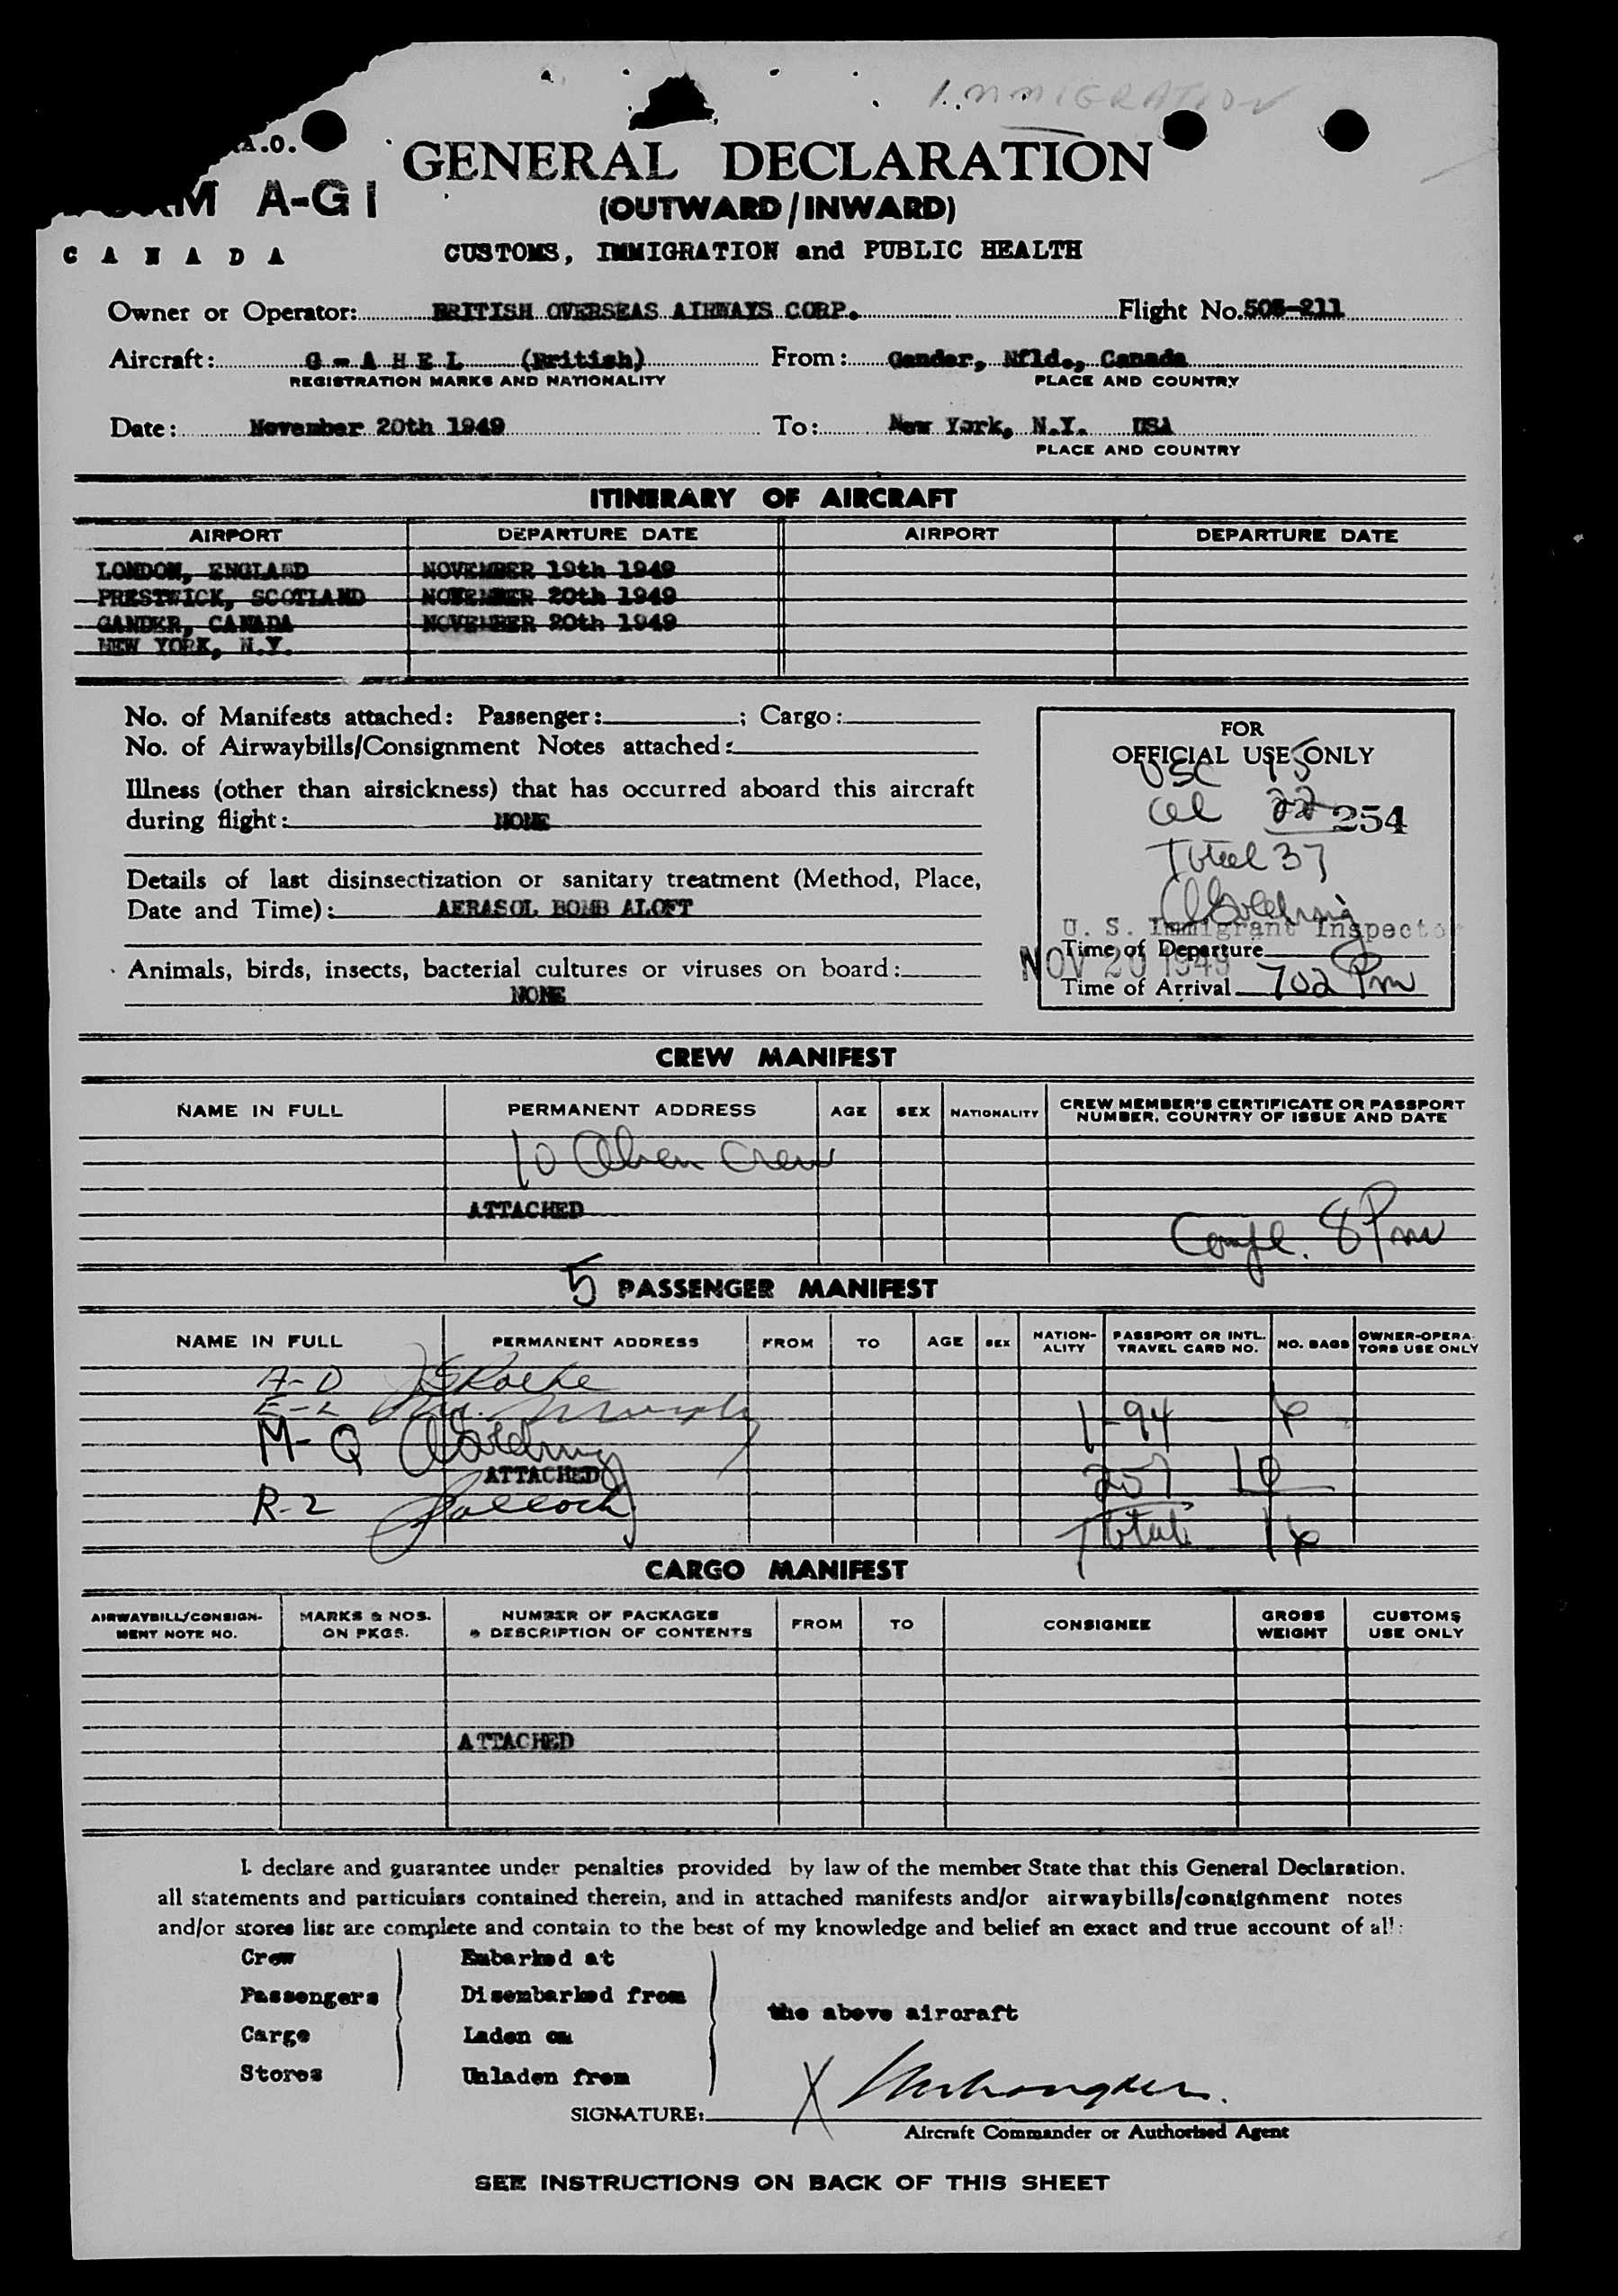 IMMIGRATION
A.O.
GENERAL DECLARATION
M A-G1
(OUTWARD/INWARD)
CANADA
CUSTOMS, IMMIGRATION and PUBLIC HEALTH
Owner or Operator: BRITISH OVERSEAS AIRWAYS CORP. Flight No. 505-211
Aircraft: G - A H E L (British) From: Gander, Nfld., Canada
REGISTRATION MARKS AND NATIONALITY PLACE AND COUNTRY
Date: November 20th 1949 To: New York, N.Y. USA
PLACE AND COUNTRY
ITINERARY OF AIRCRAFT
AIRPORT DEPARTURE DATE AIRPORT DEPARTURE DATE
LONDON, ENGLAND NOVEMBER 19th 1949
PRESTWICK, SCOTLAND NOVEMBER 20th 1949
GANDER, CANADA NOVEMBER 20th 1949
NEW YORK, N.Y.
No. of Manifests attached: Passenger: ; Cargo:
No. of Airwaybills/Consignment Notes attached:
Illness (other than airsickness) that has occurred aboard this aircraft
during flight: NONE
Details of last disinsectization or sanitary treatment (Method, Place,
Date and Time): AERASOL BOMB ALOFT
Animals, birds, insects, bacterial cultures or viruses on board:
NONE
FOR
OFFICIAL USE ONLY
USC 15
al 22 254
Total 37
U. S. Immigrant Inspector
Time of Departure
NOV 20 1949
Time of Arrival 702 Pm
CREW MANIFEST
NAME IN FULL PERMANENT ADDRESS AGE SEX NATIONALITY CREW MEMBER'S CERTIFICATE OR PASSPORT NUMBER, COUNTRY OF ISSUE AND DATE
10 Alien Crew
ATTACHED
Compl. 8 Pm
5 PASSENGER MANIFEST
NAME IN FULL PERMANENT ADDRESS FROM TO AGE SEX NATION-ALITY PASSPORT OR INTL. TRAVEL CARD NO. NO. BAGS OWNER-OPERA-TORS USE ONLY
A-D
E-L Murphy
I-94
M-Q
ATTACHED
257 10
R-Z
Total
CARGO MANIFEST
AIRWAYBILL/CONSIGN-MENT NOTE NO. MARKS & NOS. ON PKGS. NUMBER OF PACKAGES & DESCRIPTION OF CONTENTS FROM TO CONSIGNEE GROSS WEIGHT CUSTOMS USE ONLY
ATTACHED
I declare and guarantee under penalties provided by law of the member State that this General Declaration.
all statements and particulars contained therein, and in attached manifests and/or airwaybills/consignment notes
and/or stores list are complete and contain to the best of my knowledge and belief an exact and true account of all:
Crew Embarked at
Passengers Disembarked from
the above aircraft
Cargo Laden on
Stores Unladen from
X
SIGNATURE:
Aircraft Commander or Authorised Agent
SEE INSTRUCTIONS ON BACK OF THIS SHEET